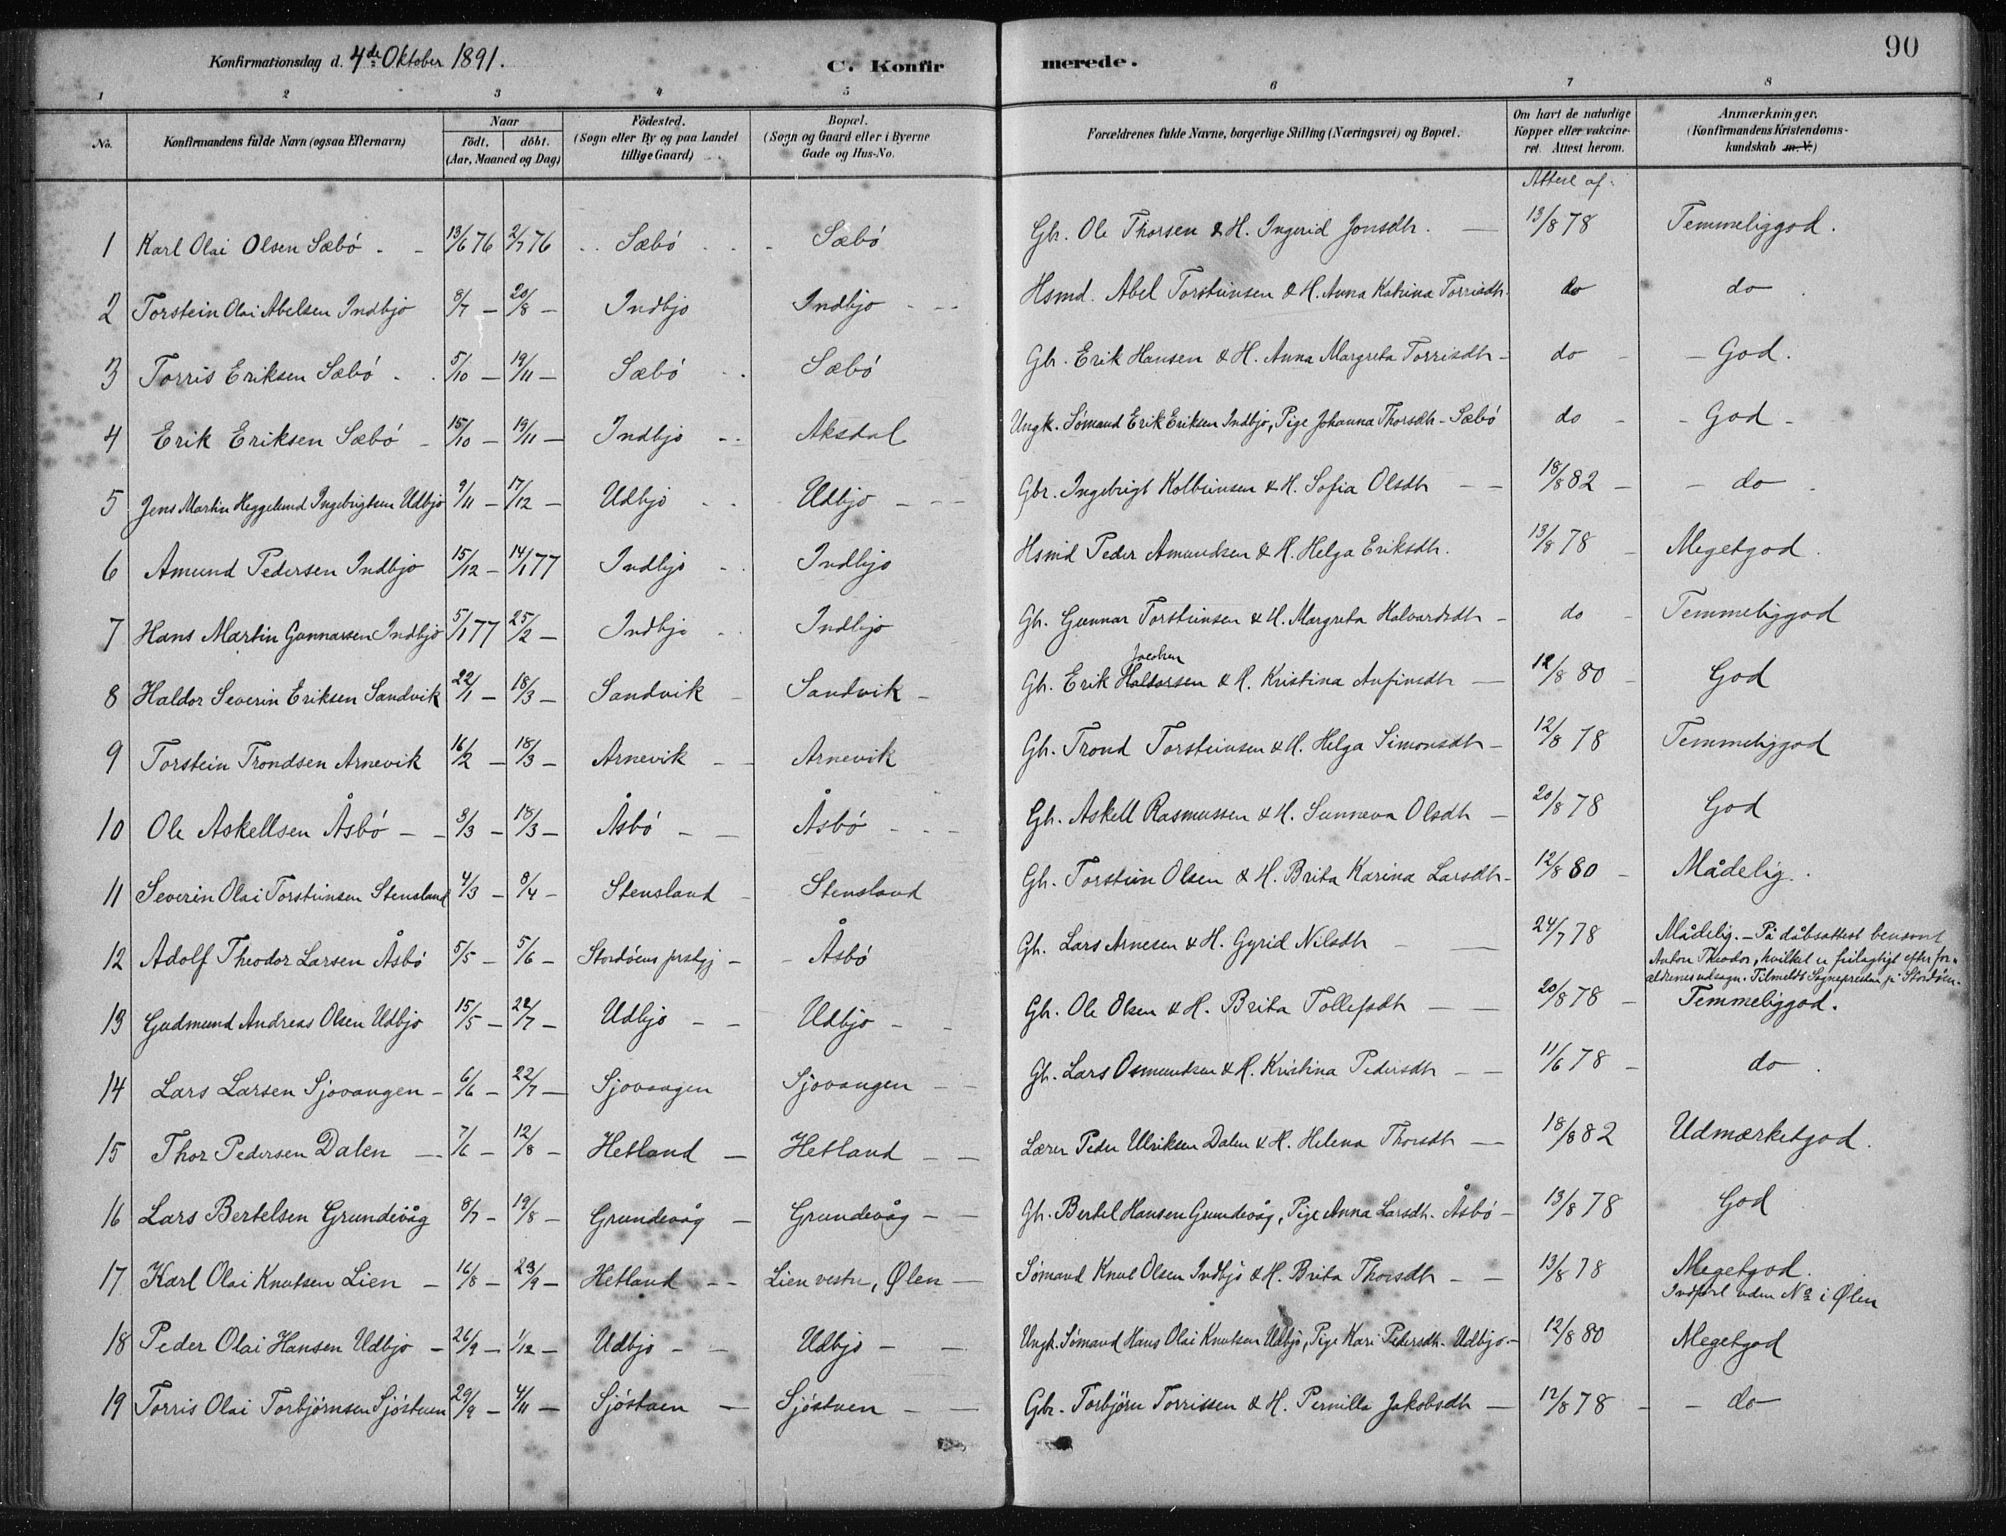 Konfirmationsdag d. 4de Oktober 1891.
C. Konfirmerede.
90
1 2 3 4 5 6 7 8
No.
Konfirmandens fulde Navn (ogsaa Efternavn)
Naar
født. døbt.
(Aar, Maaned og Dag)
Fødested.
(Sogn eller By og paa Landet
tillige Gaard)
Bopæl.
(Sogn og Gaard eller i Byerne
Gade og Hus-No.
Forældrenes fulde Navne, borgerlige Stilling (Næringsvei) og Bopæl.
Om havt de naturlige
Kopper eller vakcine-
ret. Attest herom.
Anmærkninger.
(Konfirmandens Kristendoms-
kundskab m. V.)
Attest af:
1 Karl Olai Olsen Sæbö 13/6 76 2/7 76 Sæbö Sæbö Gbr. Ole Thorsen & H. Ingerid Jonsdtr. 13/8 78 Temmeliggod.
2 Torstein Olai Abelsen Indbjo 8/7 — 20/8 — Indbjo Indbjo Hsmd. Abel Torsteinsen & H. Anna Katrina Torrisdtr. do do
3 Torris Eriksen Sæbö 5/10 — 19/11 — Sæbö Sæbö Gbr. Erik Hansen & H. Anna Margreta Torrisdtr — do — God.
4 Erik Eriksen Sæbö 15/10 — 19/11 — Indbjo Aksdal Ungk. Sømand Erik Eriksen Indbjo, Pige Johanna Thorsdtr. Sæbö do — God —
5 Jens Martin Heggelund Ingebrigtsen Udbjo 9/11 — 17/12 — Udbjo Udbjo Gbr. Ingebrigt Kolbeinsen & H. Sofia Olsdtr 18/8 82 — do
6 Amund Pedersen Indbjo 15/12 — 14/1 77 Indbjo Indbjo Hsmd Peder Amundsen & H. Helga Eriksdtr. 13/8 78 Megetgod.
7 Hans Martin Gunnarsen Indbjo 5/1 77 25/2 — Indbjo Indbjo Gbr. Gunnar Torsteinsen & H. Margreta Halvardsdtr — do — Temmeliggod
Jacobsen
8 Haldor Severin Eriksen Sandvik 22/1 — 18/3 — Sandvik Sandvik Gbr. Erik Haldorsen & H. Kristina Anfinsdtr 12/8 80 — God
9 Torstein Trondsen Arnevik 16/2 — 18/3 — Arnevik Arnevik Gbr. Trond Torsteinsen & H. Helga Simonsdtr 12/8 78 Temmeliggod
10 Ole Askellsen Åsbö 3/3 — 18/3 — Åsbö Åsbö Gbr. Askell Rasmussen & H. Sunneva Olsdtr 20/8 78 God
11 Severin Olai Torsteinsen Stensland 4/3 — 8/4 — Stensland Stensland Gbr. Torstein Olsen & H. Brita Karina Larsdtr 12/8 80 Mådelig.
12 Adolf Theodor Larsen Åsbö 5/5 — 5/6 — Stordöens prstgj — Åsbö Gbr. Lars Arnesen & H. Gyrid Nilsdtr 24/7 78 Mådelig. — På dåbsattest benævnt
Anton Theodor, hvilket er feilagtigt efter for-
ældrenes udsagn. Tilmeldt Sognepresten på Stordöen.
13 Gudmund Andreas Olsen Udbjo 15/5 — 22/7 — Udbjo Udbjo Gbr. Ole Olsen & H. Brita Tollefsdtr 20/8 78 — Temmeliggod.
14 Lars Larsen Sjovangen 6/6 — 22/7 — Sjovangen Sjovangen Gbr. Lars Osmundsen & H. Kristina Pedersdtr 11/6 78 — do
15 Thor Pedersen Dalen 7/6 — 12/8 — Hetland Hetland Lærer Peder Ulriksen Dalen & H. Helena Thorsdtr 18/8 82 Udmærketgod.
16 Lars Bertelsen Grundevåg 8/7 — 19/8 — Grundevåg Grundevåg Gbr. Bertel Hansen Grundevåg, Pige Anna Larsdtr. Åsbö 13/8 78 God
17 Karl Olai Knutsen Lien 16/8 — 23/9 — Hetland Lien vestre, Ølen Sømand Knut Olsen Indbjo & H. Brita Thorsdtr 13/8 78 Megetgod.
Indført uden No i Ølen
18 Peder Olai Hansen Udbjo 26/9 — 1/12 — Udbjo Udbjo Ungk. Sømand Hans Olai Knutsen Udbjo, Pige Kari Pedersdtr. Udbjo 12/8 80 Megetgod
19 Torris Olai Torbjørnsen Sjöstuen 29/9 — 4/11 — Sjöstuen Sjöstuen Gbr. Torbjørn Torrissen & H. Pernilla Jakobsdtr 12/8 78 — do